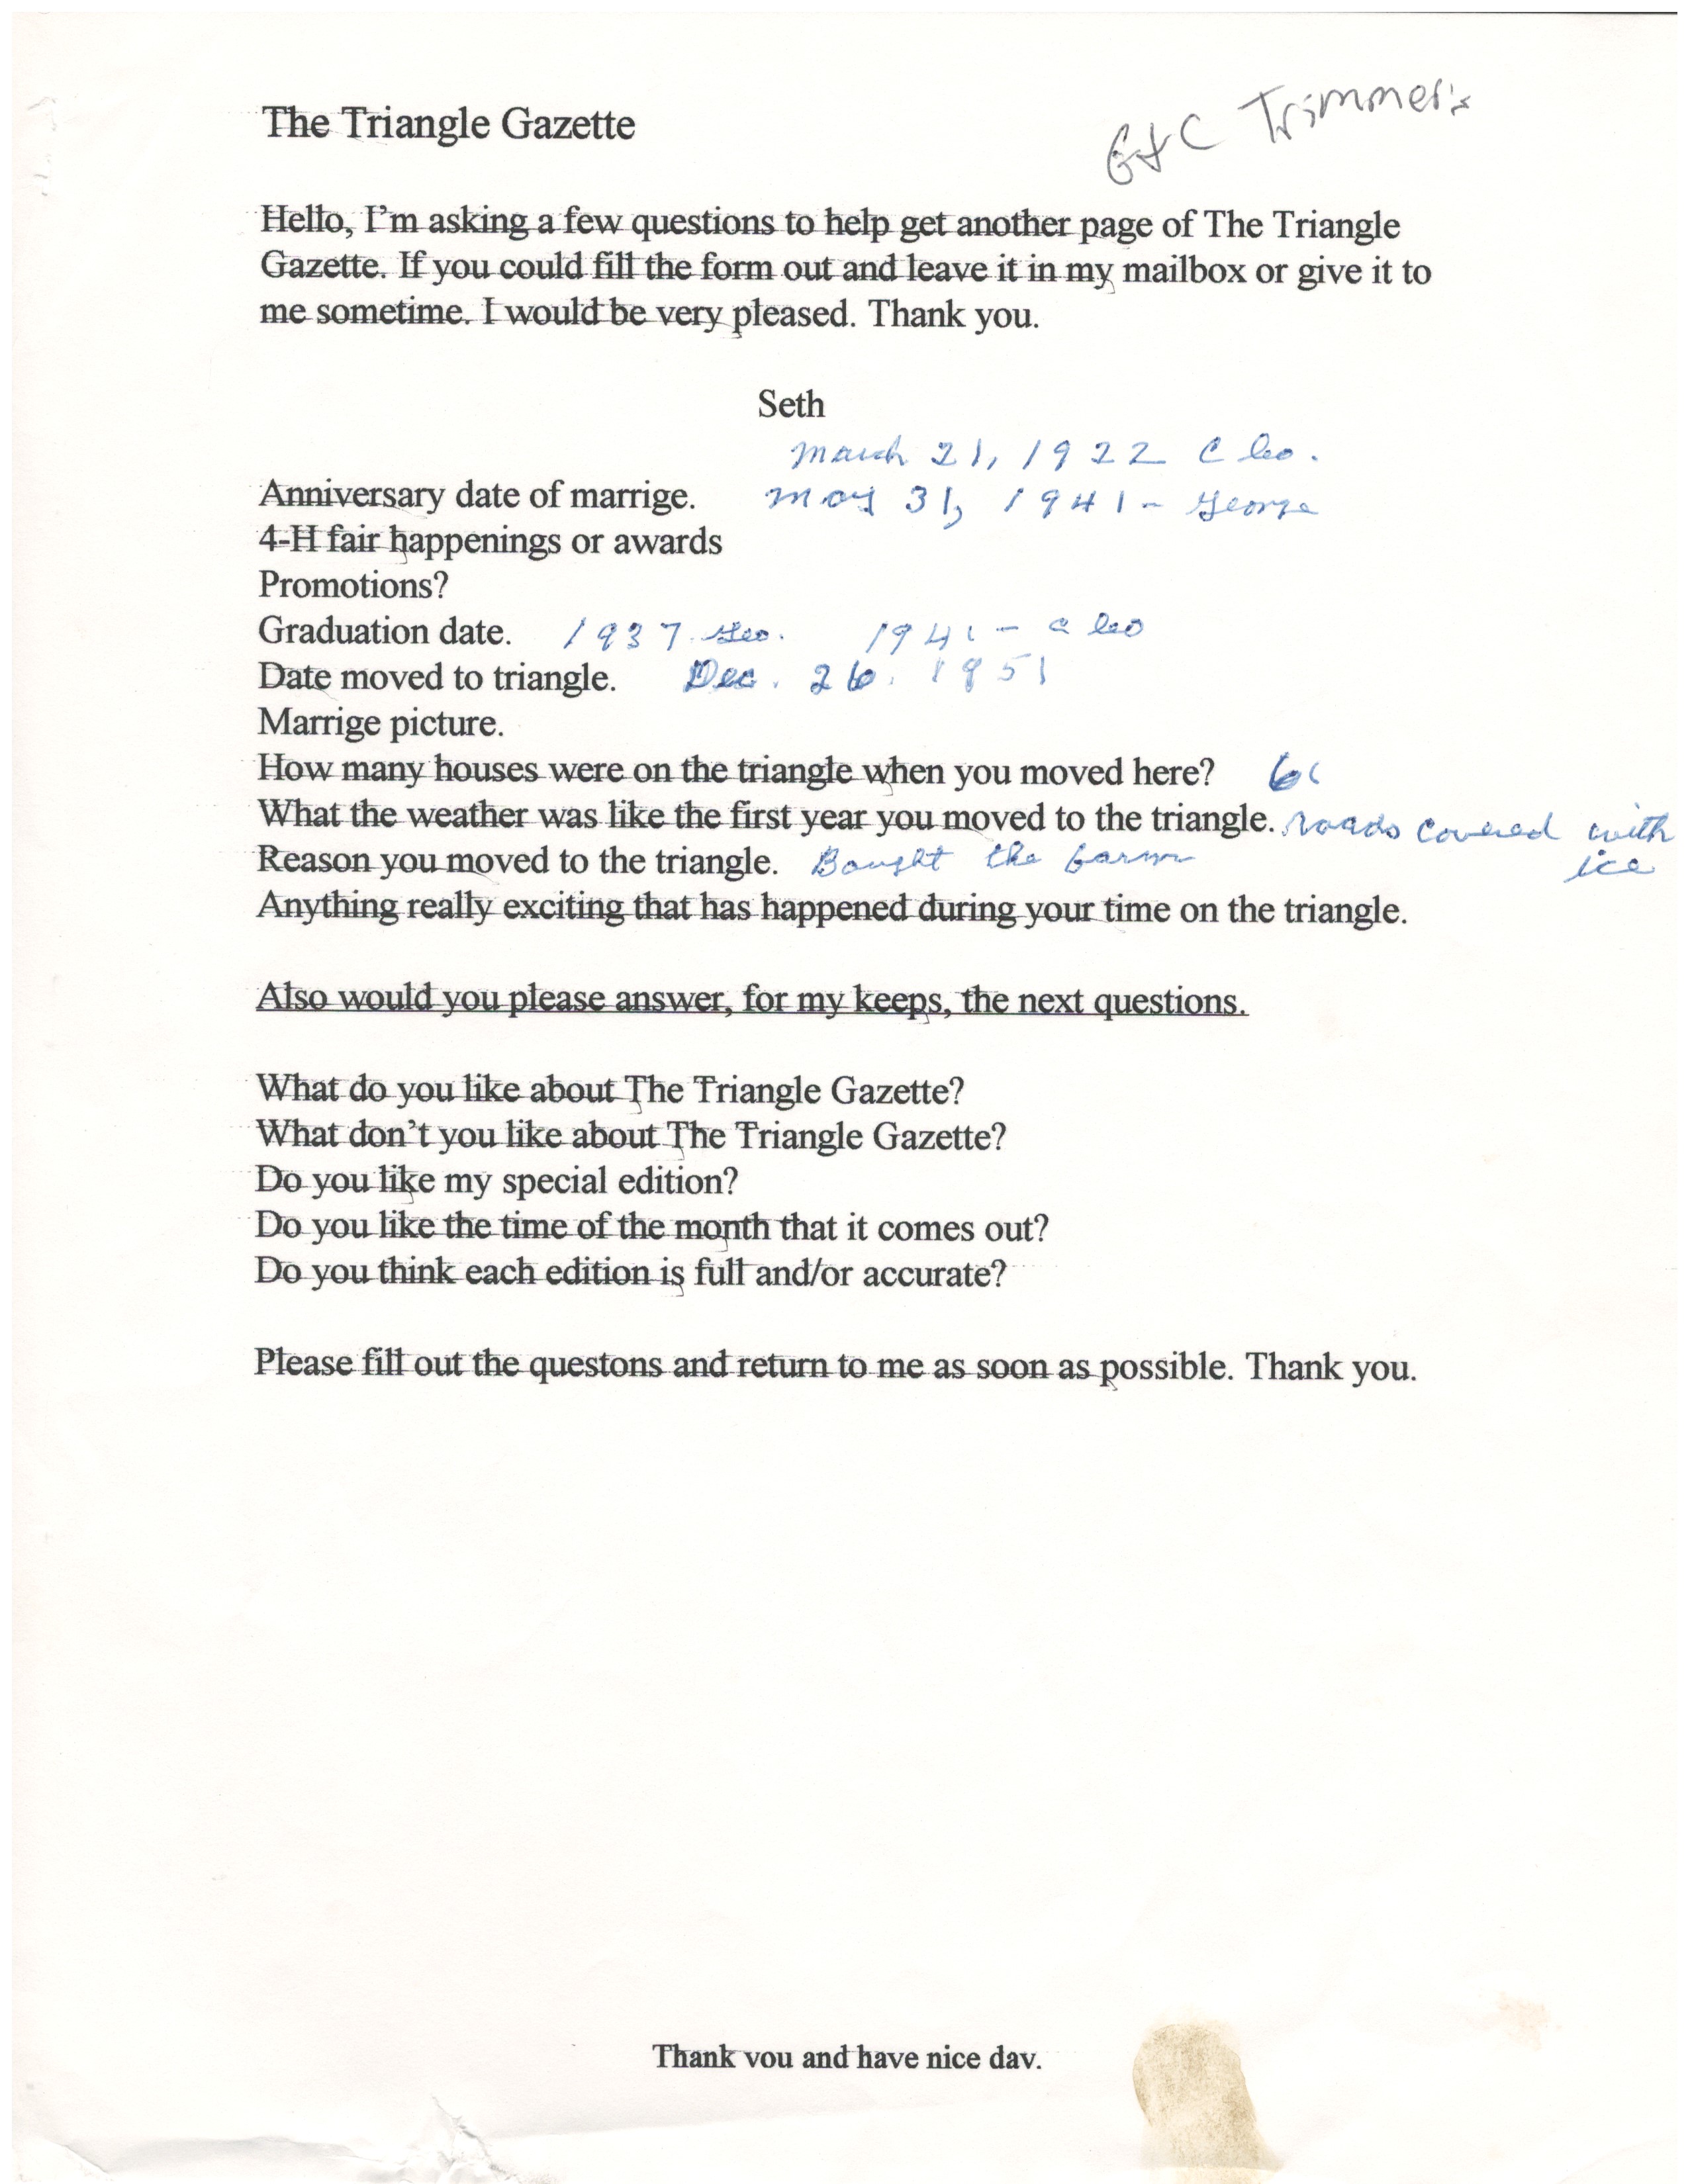 The Triangle Gazette
G&C Trimmer's
Hello, I'm asking a few questions to help get another page of The Triangle
Gazette. If you could fill the form out and leave it in my mailbox or give it to
me sometime. I would be very pleased. Thank you.
Seth
March 21, 1922 Cleo.
Anniversary date of marrige. May 31, 1941 - George
4-H fair happenings or awards
Promotions?
Graduation date. 1937 Geo. 1941 - Cleo
Date moved to triangle. Dec. 26. 1951
Marrige picture.
How many houses were on the triangle when you moved here? 6
What the weather was like the first year you moved to the triangle. roads covered with
ice
Reason you moved to the triangle. Bought the farm
Anything really exciting that has happened during your time on the triangle.
Also would you please answer, for my keeps, the next questions.
What do you like about The Triangle Gazette?
What don't you like about The Triangle Gazette?
Do you like my special edition?
Do you like the time of the month that it comes out?
Do you think each edition is full and/or accurate?
Please fill out the questons and return to me as soon as possible. Thank you.
Thank you and have nice day.